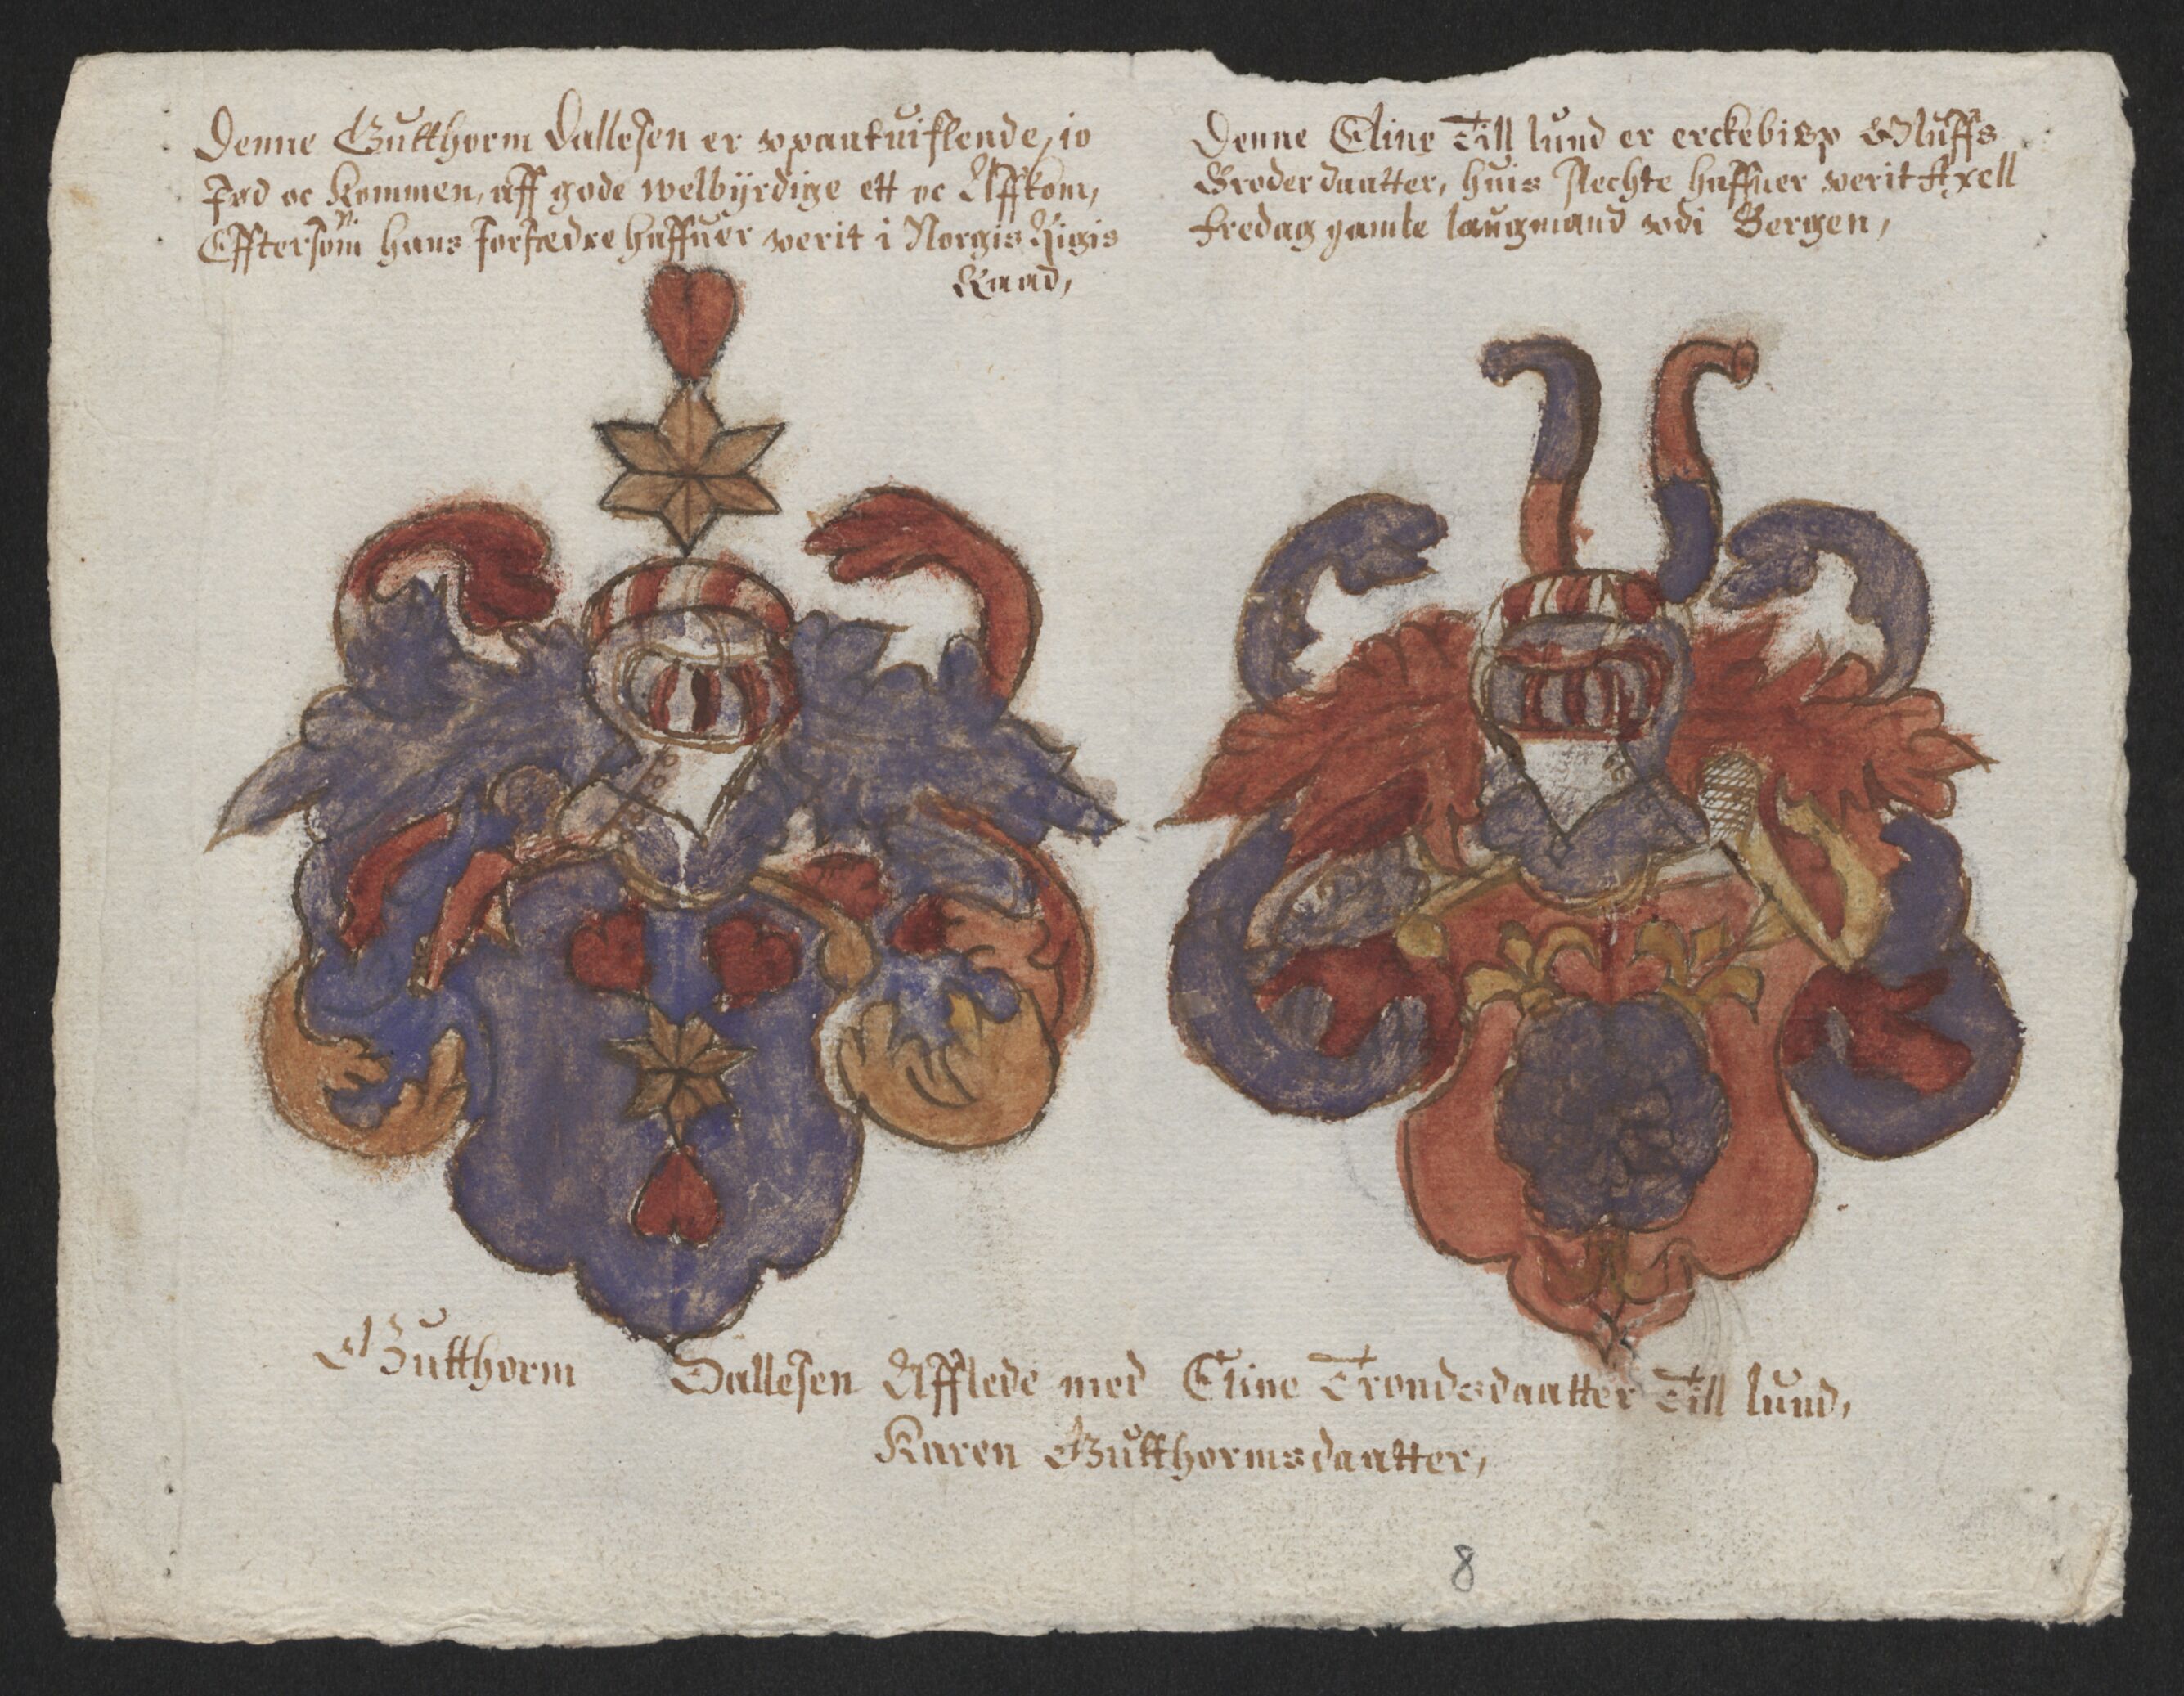 Denne Gutthorm Dallesen er wpaatuiflende, io
fød oc kommen, aff gode welbÿrdige ett oc Affkom,
Efftersom hans forfædre haffuer verit i Norgis Rigis
Raad,
Denne Eline Till lund er erckebisp Oluffs
Broder daatter, huis slechte haffuer verit Axell
fredag gamle laugmand vdi Bergen,
Gutthorm Dallesen Afflede med Eline Trondsdaatter Till lund,
Karen Gutthormsdaatter,
8